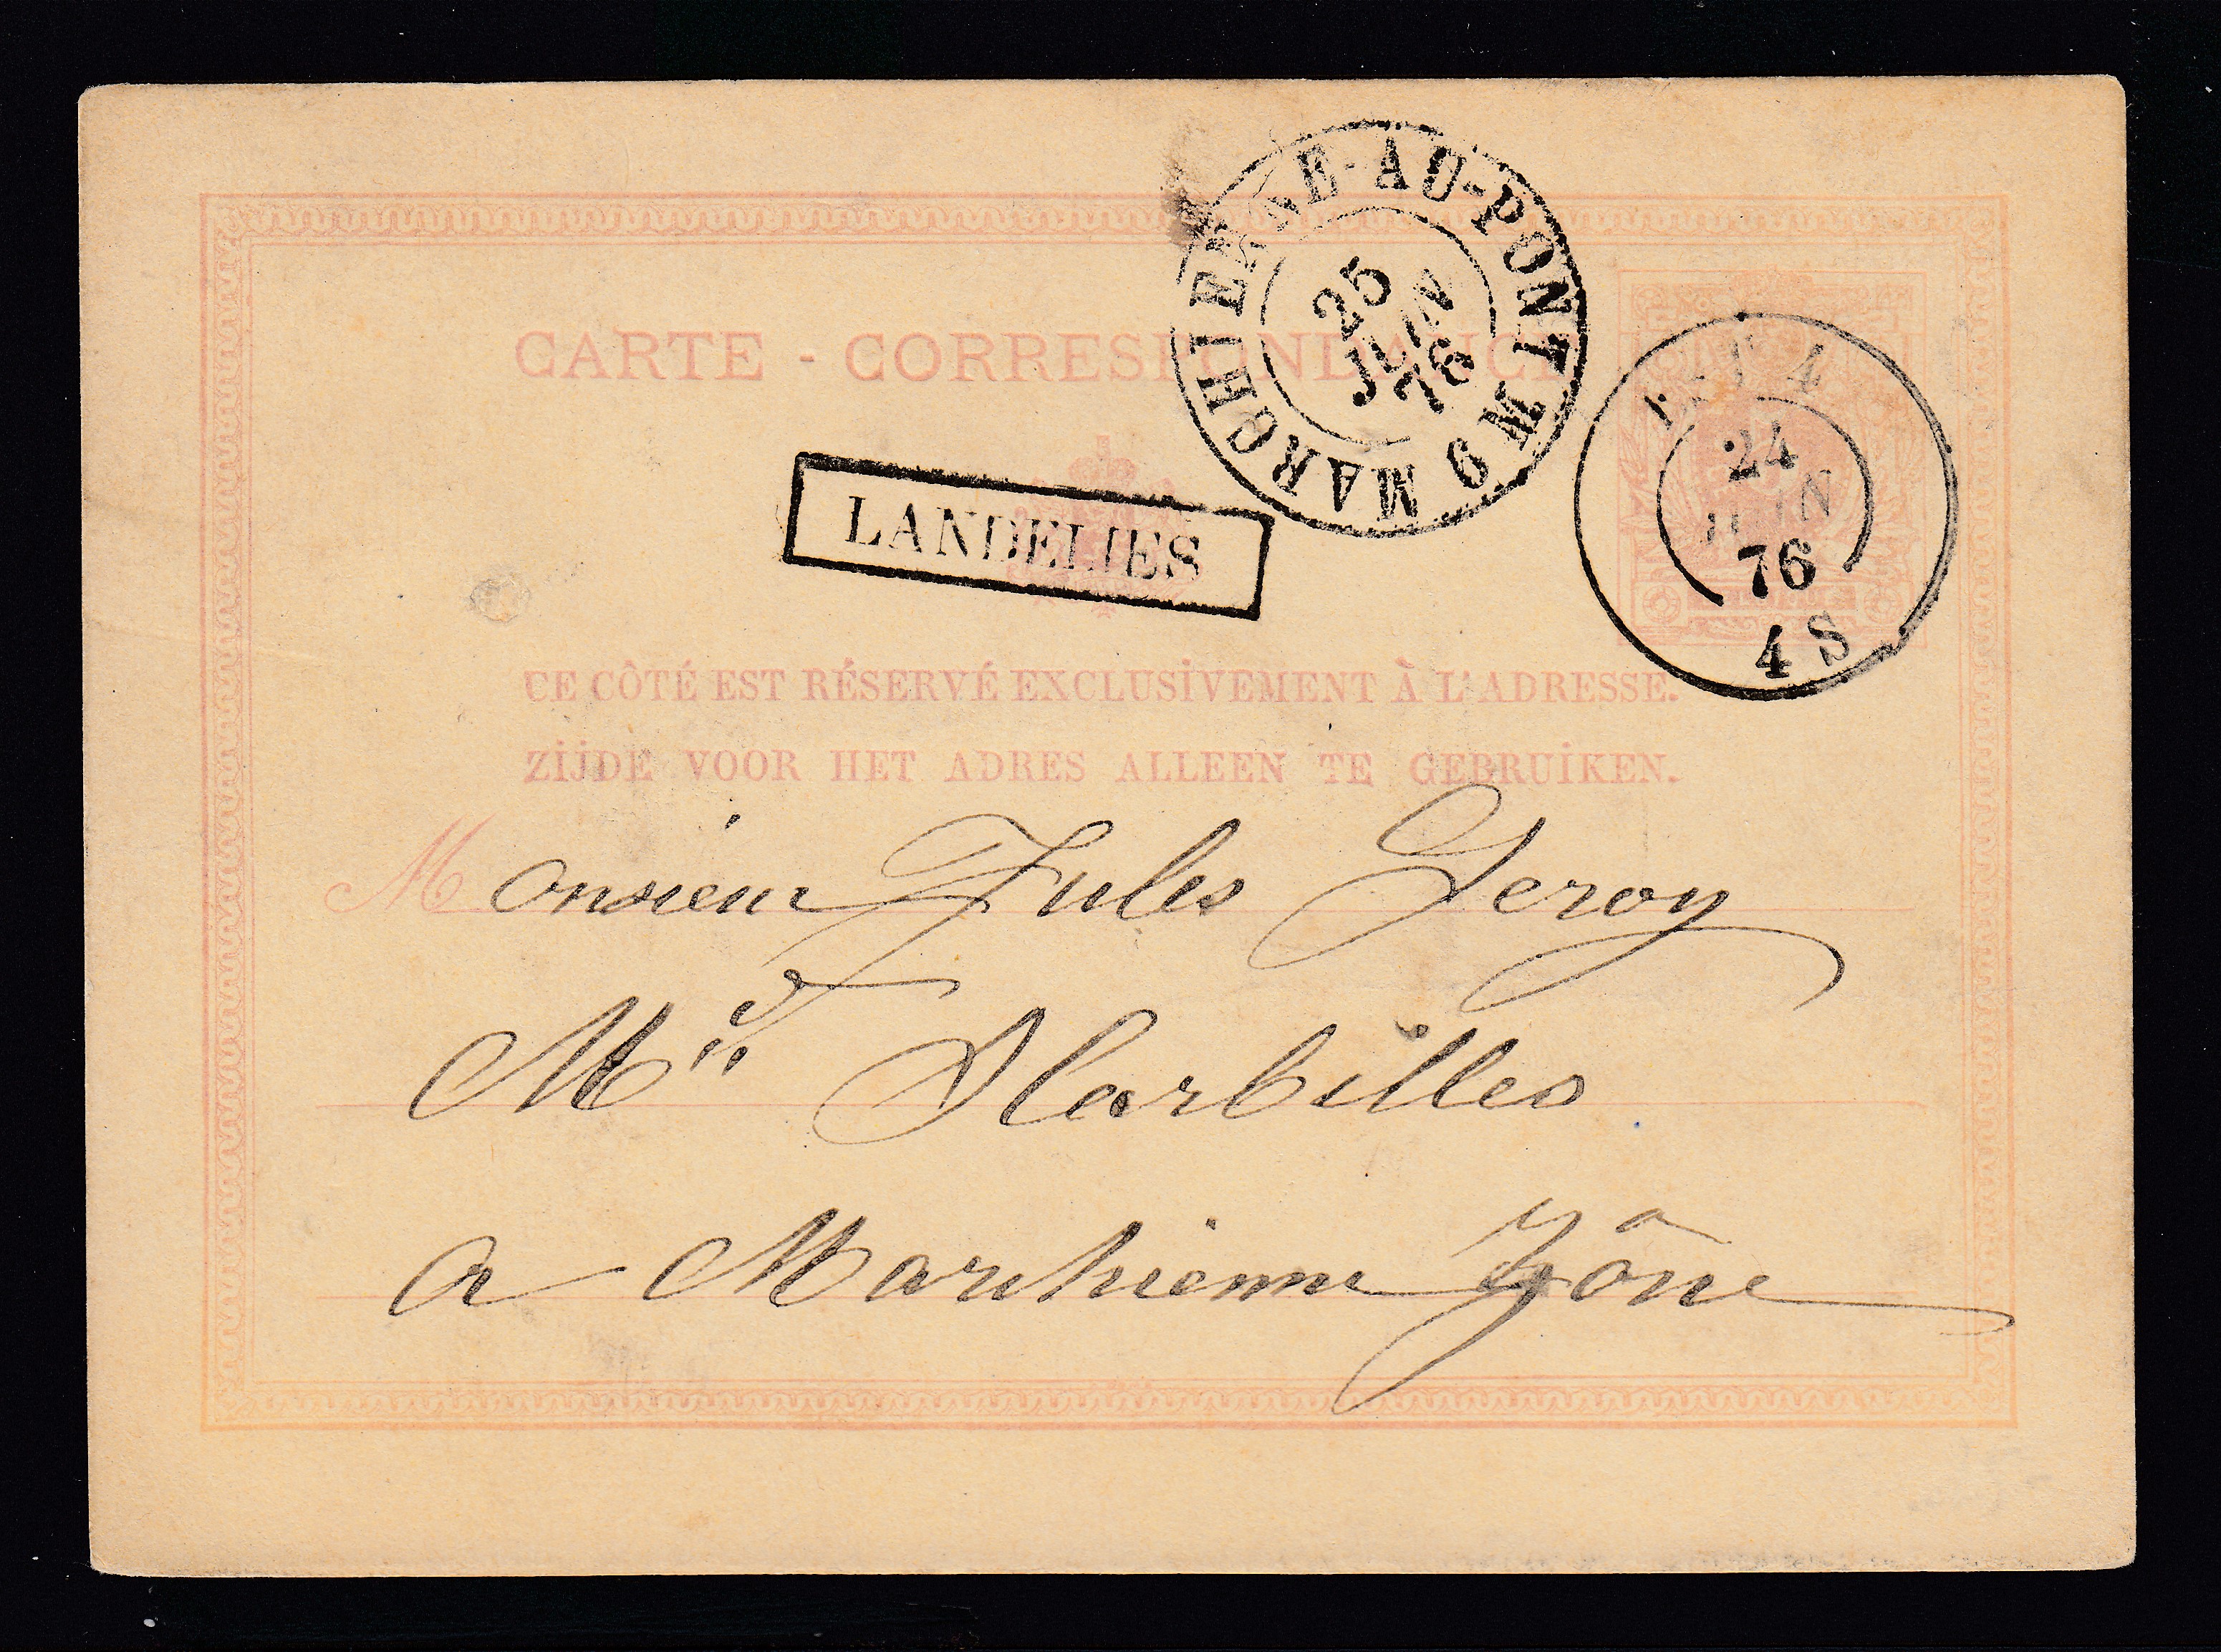 MARCHIENNE-AU-PONT 9 M
25
JUIN
76
CARTE - CORRESPONDANCE
EST 4
24
JUIN
76
4 S
LANDELIES
CE CÔTÉ EST RÉSERVÉ EXCLUSIVEMENT À L'ADRESSE.
ZIJDE VOOR HET ADRES ALLEEN TE GEBRUIKEN.
Monsieur Jules Leroy
Md
à Marchienne Zône